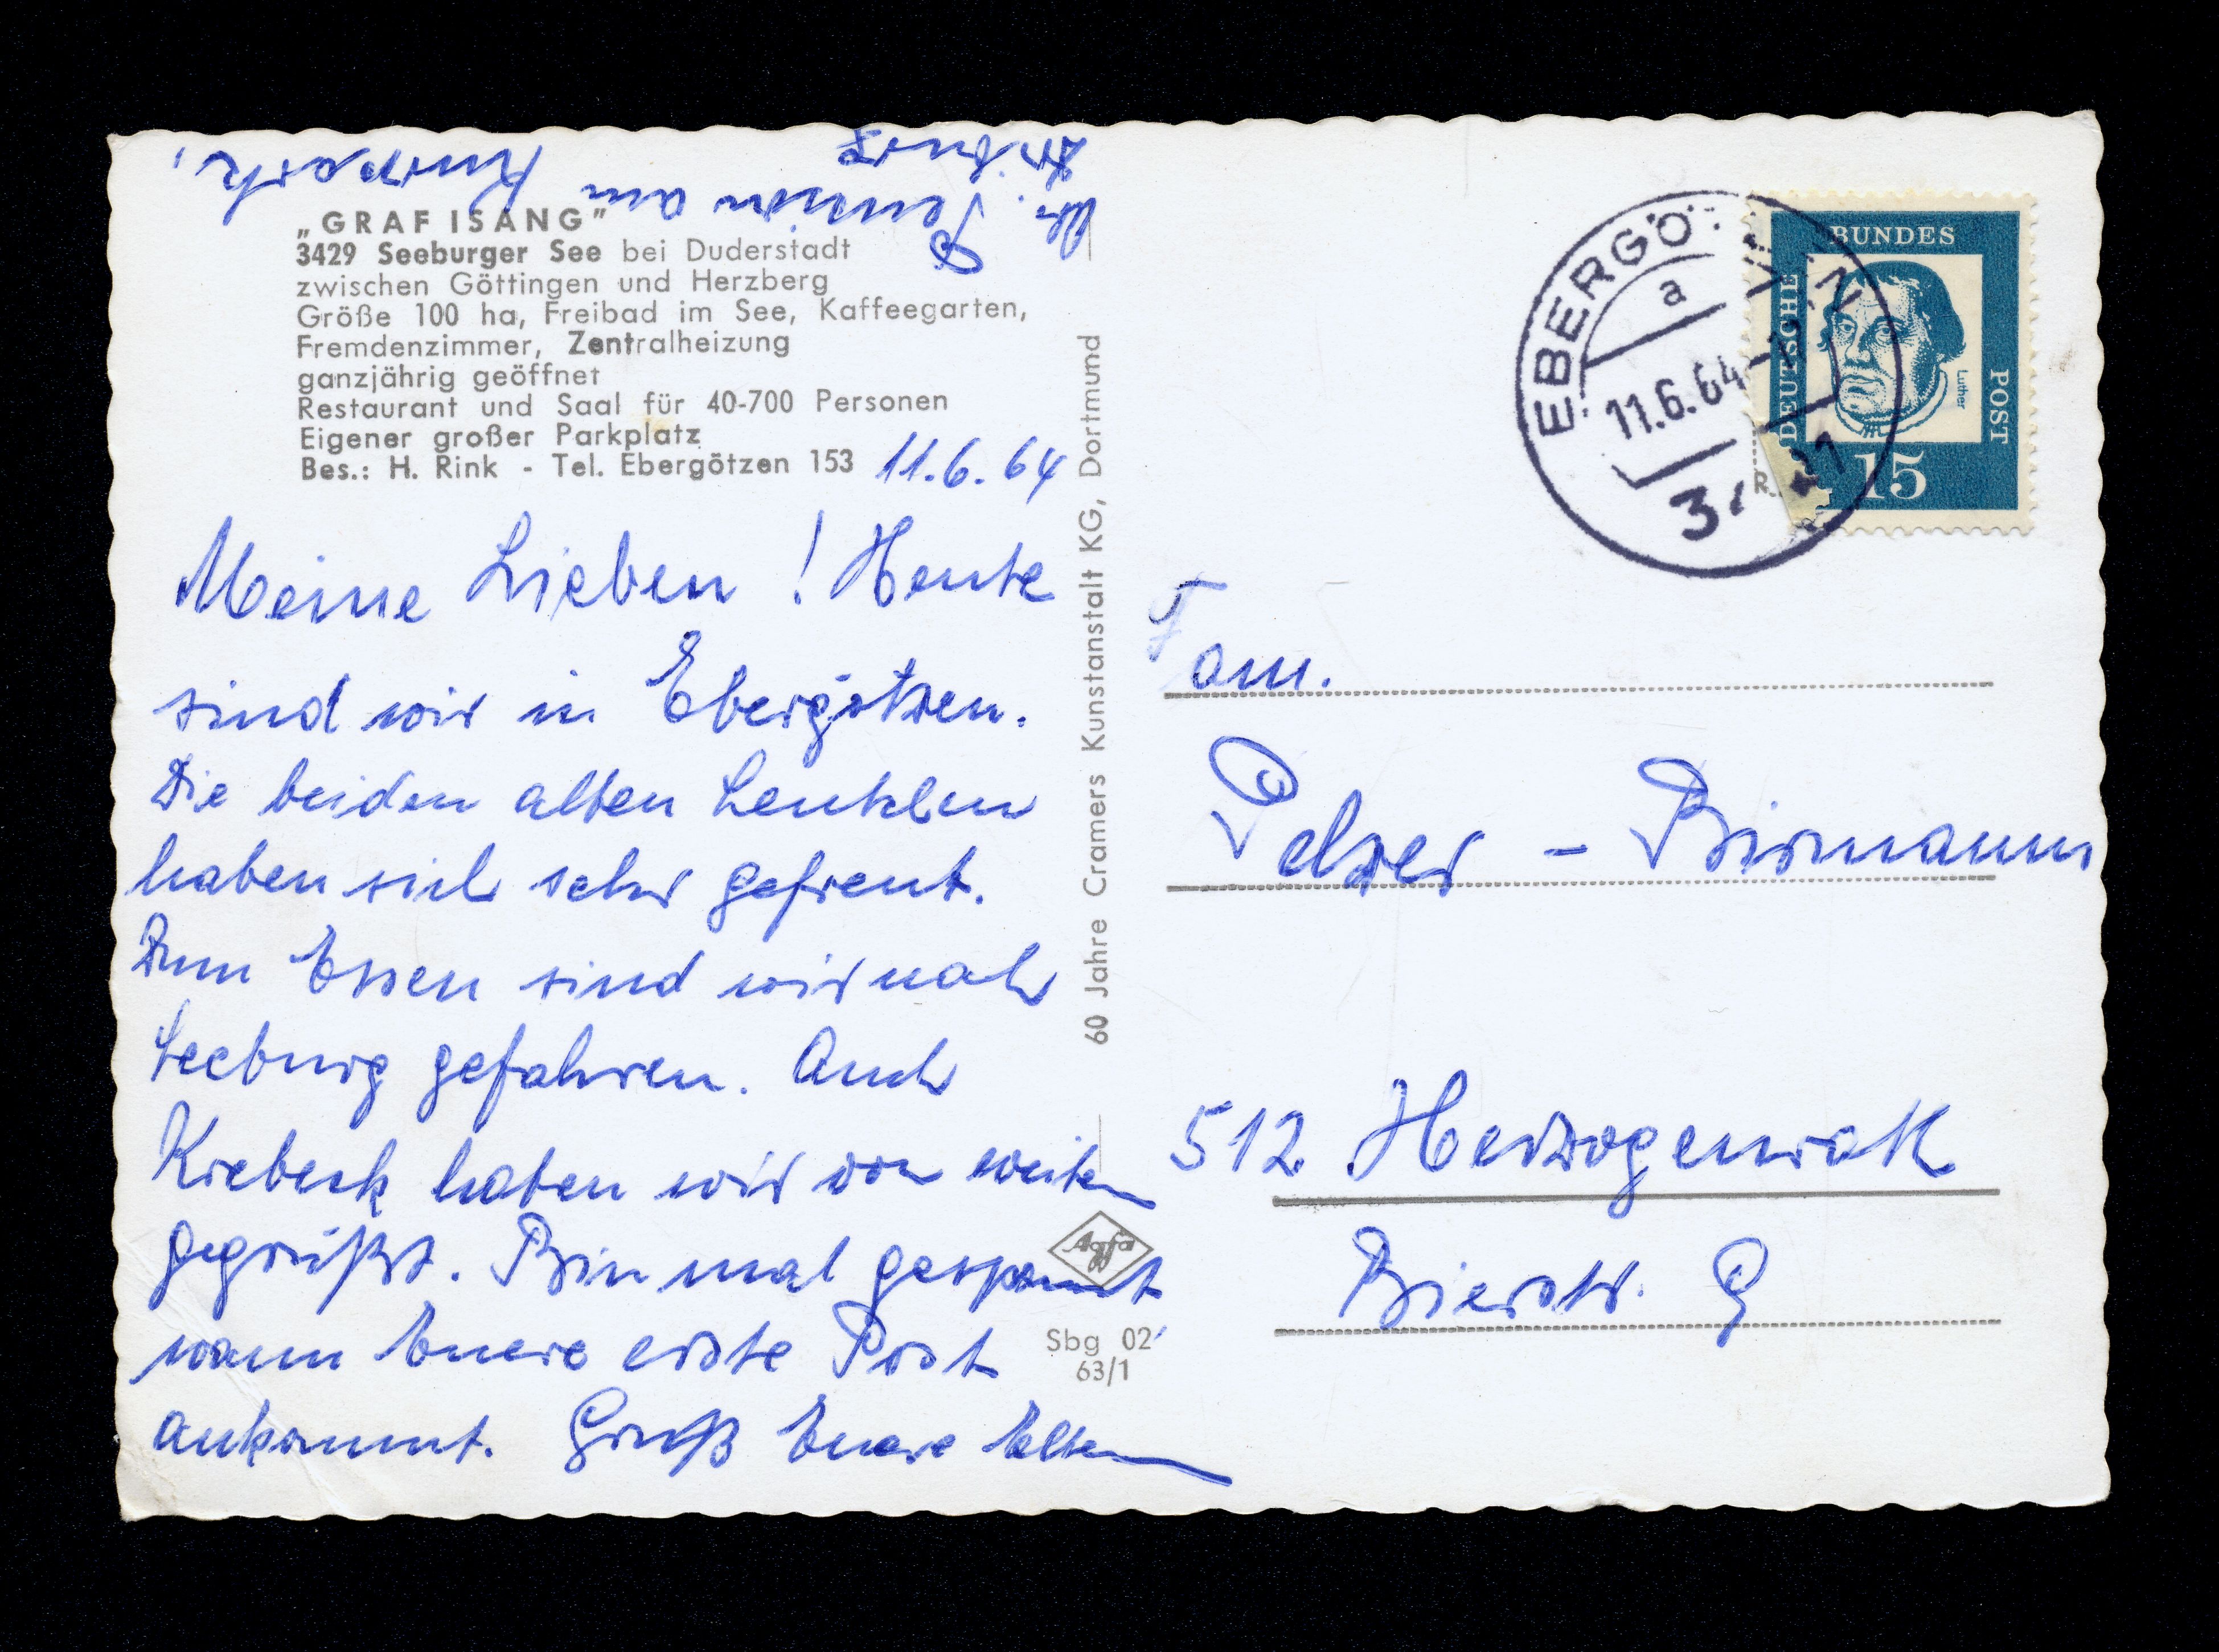 „GRAF ISANG”
3429 Seeburger See bei Duderstadt
zwischen Göttingen und Herzberg
Größe 100 ha, Freibad im See, Kaffeegarten,
Fremdenzimmer, Zentralheizung
ganzjährig geöffnet
Restaurant und Saal für 40-700 Personen
Eigener großer Parkplatz
Bes.: H. Rink - Tel. Ebergötzen 153
11.6.64
Meine Lieben! Heute
sind wir in Ebergötzen.
Die beiden alten Leutchen
haben sich sehr gefreut.
Zum Essen sind wir nach
Seeburg gefahren. Auch
Krebeck haben wir von weitem
gegrüßt. Bin mal gespannt
wann Euere erste Post
ankommt. Gruß Euere Eltern
Pension am Kurpark,
60 Jahre Cramers Kunstanstalt KG, Dortmund
Agfa
Sbg 02
63/1
EBERGÖ
a
11.6.64
DEUTSCHE
BUNDES
POST
Luther
15
Fam.
Pelzer - Birmanns
512 Herzogenrath
Bierstr. 9